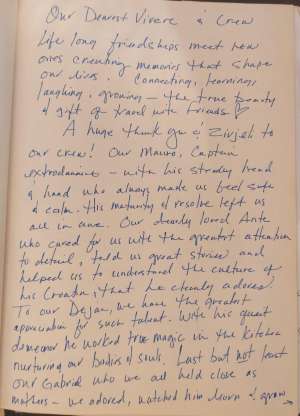 Our Dearest Vivere & Crew
Life long friendships meet new
ones creating memories that shape
our lives. Connecting, learning,
laughing, growing — the true beauty
& gift of travel with friends
A huge thank you & Zivjeli to
our crew! Our Mauro, Captain
extrodinaire - with his steady head
& hand who always made us feel safe
& calm. His maturity & resolve left us
all in awe. Our dearly loved Ante
who cared for us with the greatest attention
to detail, told us great stories and
helped us to understand the culture of
his Croatia, that he clearly adores.
To our Dejan, we have the greatest
appreciation for such talent. With his quiet
demeanor he worked true magic in the kitchen
nurturing our bodies & souls. Last but not least
our Gabriel who we all held close as
mothers - we adored, watched him learn & grow